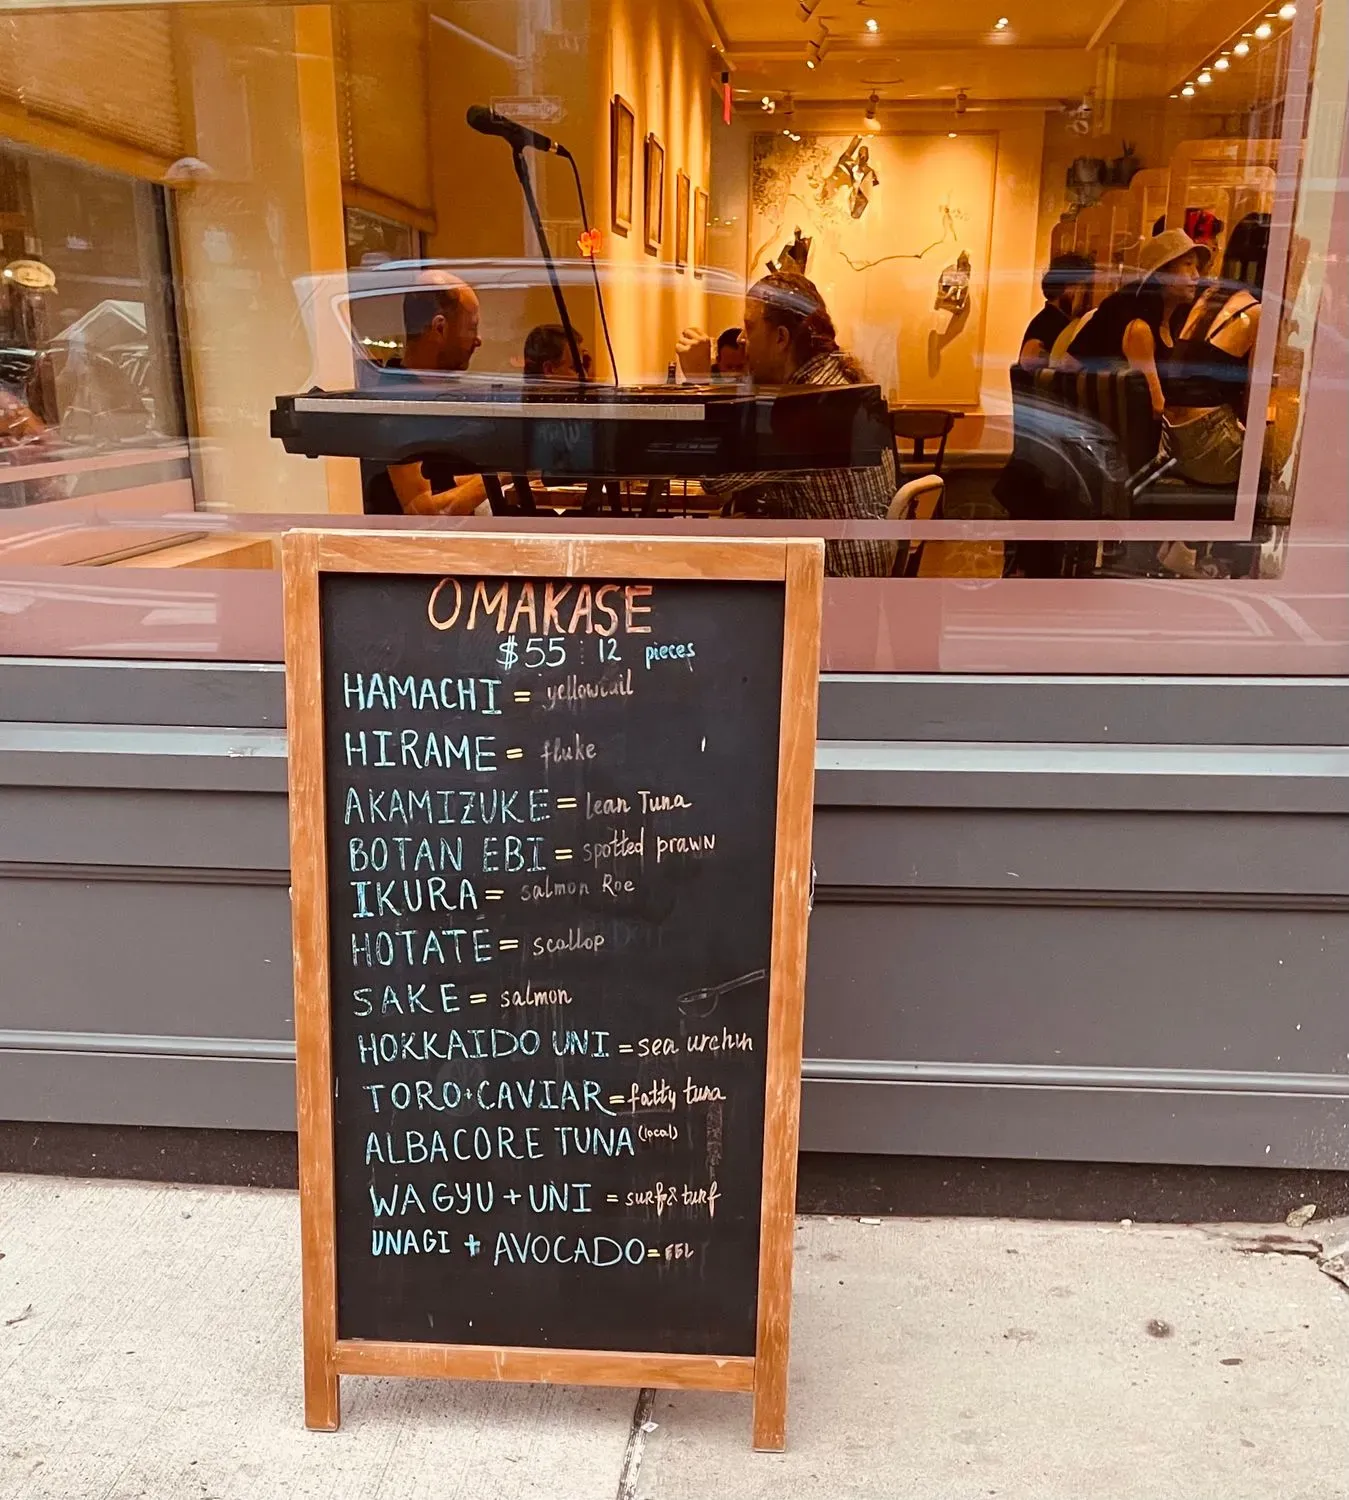 OMAKASE
$55 : 12 pieces
HAMACHI = yellowtail
HIRAME = fluke
AKAMIZUKE = lean Tuna
BOTAN EBI = spotted prawn
IKURA = salmon Roe
HOTATE = scallop
SAKE = salmon
HOKKAIDO UNI = sea urchin
TORO + CAVIAR = fatty tuna
ALBACORE TUNA (local)
WAGYU + UNI = surf & turf
UNAGI + AVOCADO = EEL